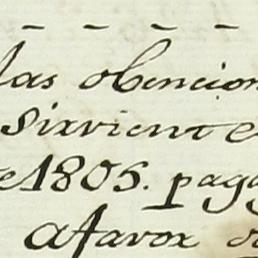 las obencion
Sirviente
e 1805. pag
afavor d